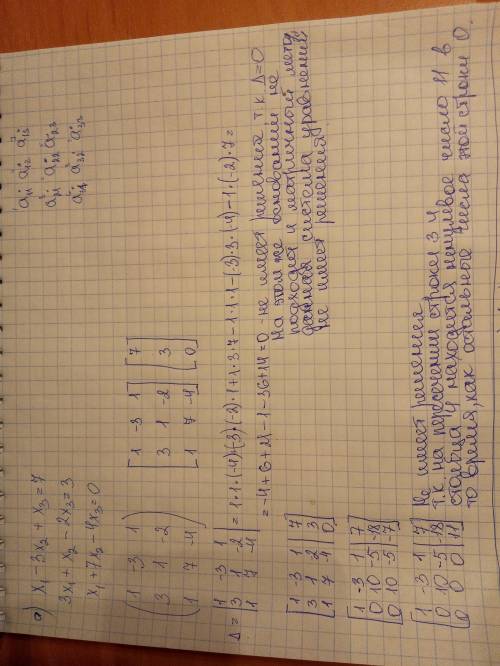 а) x₁ - 3x₂ + x₃ = 7
3x₁ + x₂ - 2x₃ = 3
x₁ + 7x₂ - 4x₃ = 0
a₁₁ a₁₂ a₁₃
a₂₁ a₂₂ a₂₃
a₃₁ a₃₂ a₃₃
(1 -3 1
3 1 -2
1 7 -4)
[1 -3 1] [7]
[3 1 -2] [3]
[1 7 -4] [0]
Δ = |1 -3 1
3 1 -2
1 7 -4| = 1·1·(-4)+(-3)·(-2)·1+1·3·7-1·1·1-(-3)·3·(-4)-1·(-2)·7=
= -4+6+21-1-36+14=0 - не имеет решений т.к. Δ=0
На этом же основании не
подходит и матричный метод
данная система уравнений
не имеет решений
[1 -3 1 | 7]
[3 1 -2 | 3]
[1 7 -4 | 0]
[1 -3 1 | 7]
[0 10 -5 | -18]
[0 10 -5 | -7]
[1 -3 1 | 7]
[0 10 -5 | -18]
[0 0 0 | 11]
Не имеет решений
т.к. на пересечении строки 3 и
столбца 4 находится ненулевое число 11 в
то время, как остальные числа этой строки 0.